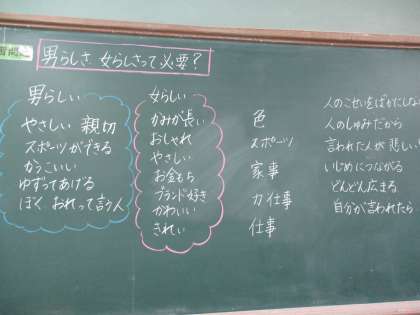 男らしさ 女らしさって必要?
男らしい
やさしい 親切
スポーツができる
かっこいい
ゆずってあげる
ぼく おれって言う人
女らしい
かみが長い
おしゃれ
やさしい
お金もち
ブランド好き
かわいい
きれい
色
スポーツ
家事
力仕事
仕事
人のこせいをばかだにしな
人のしゅみだから
言われた人が悲しい
いじめにつながる
どんどん広まる
自分が言われたら